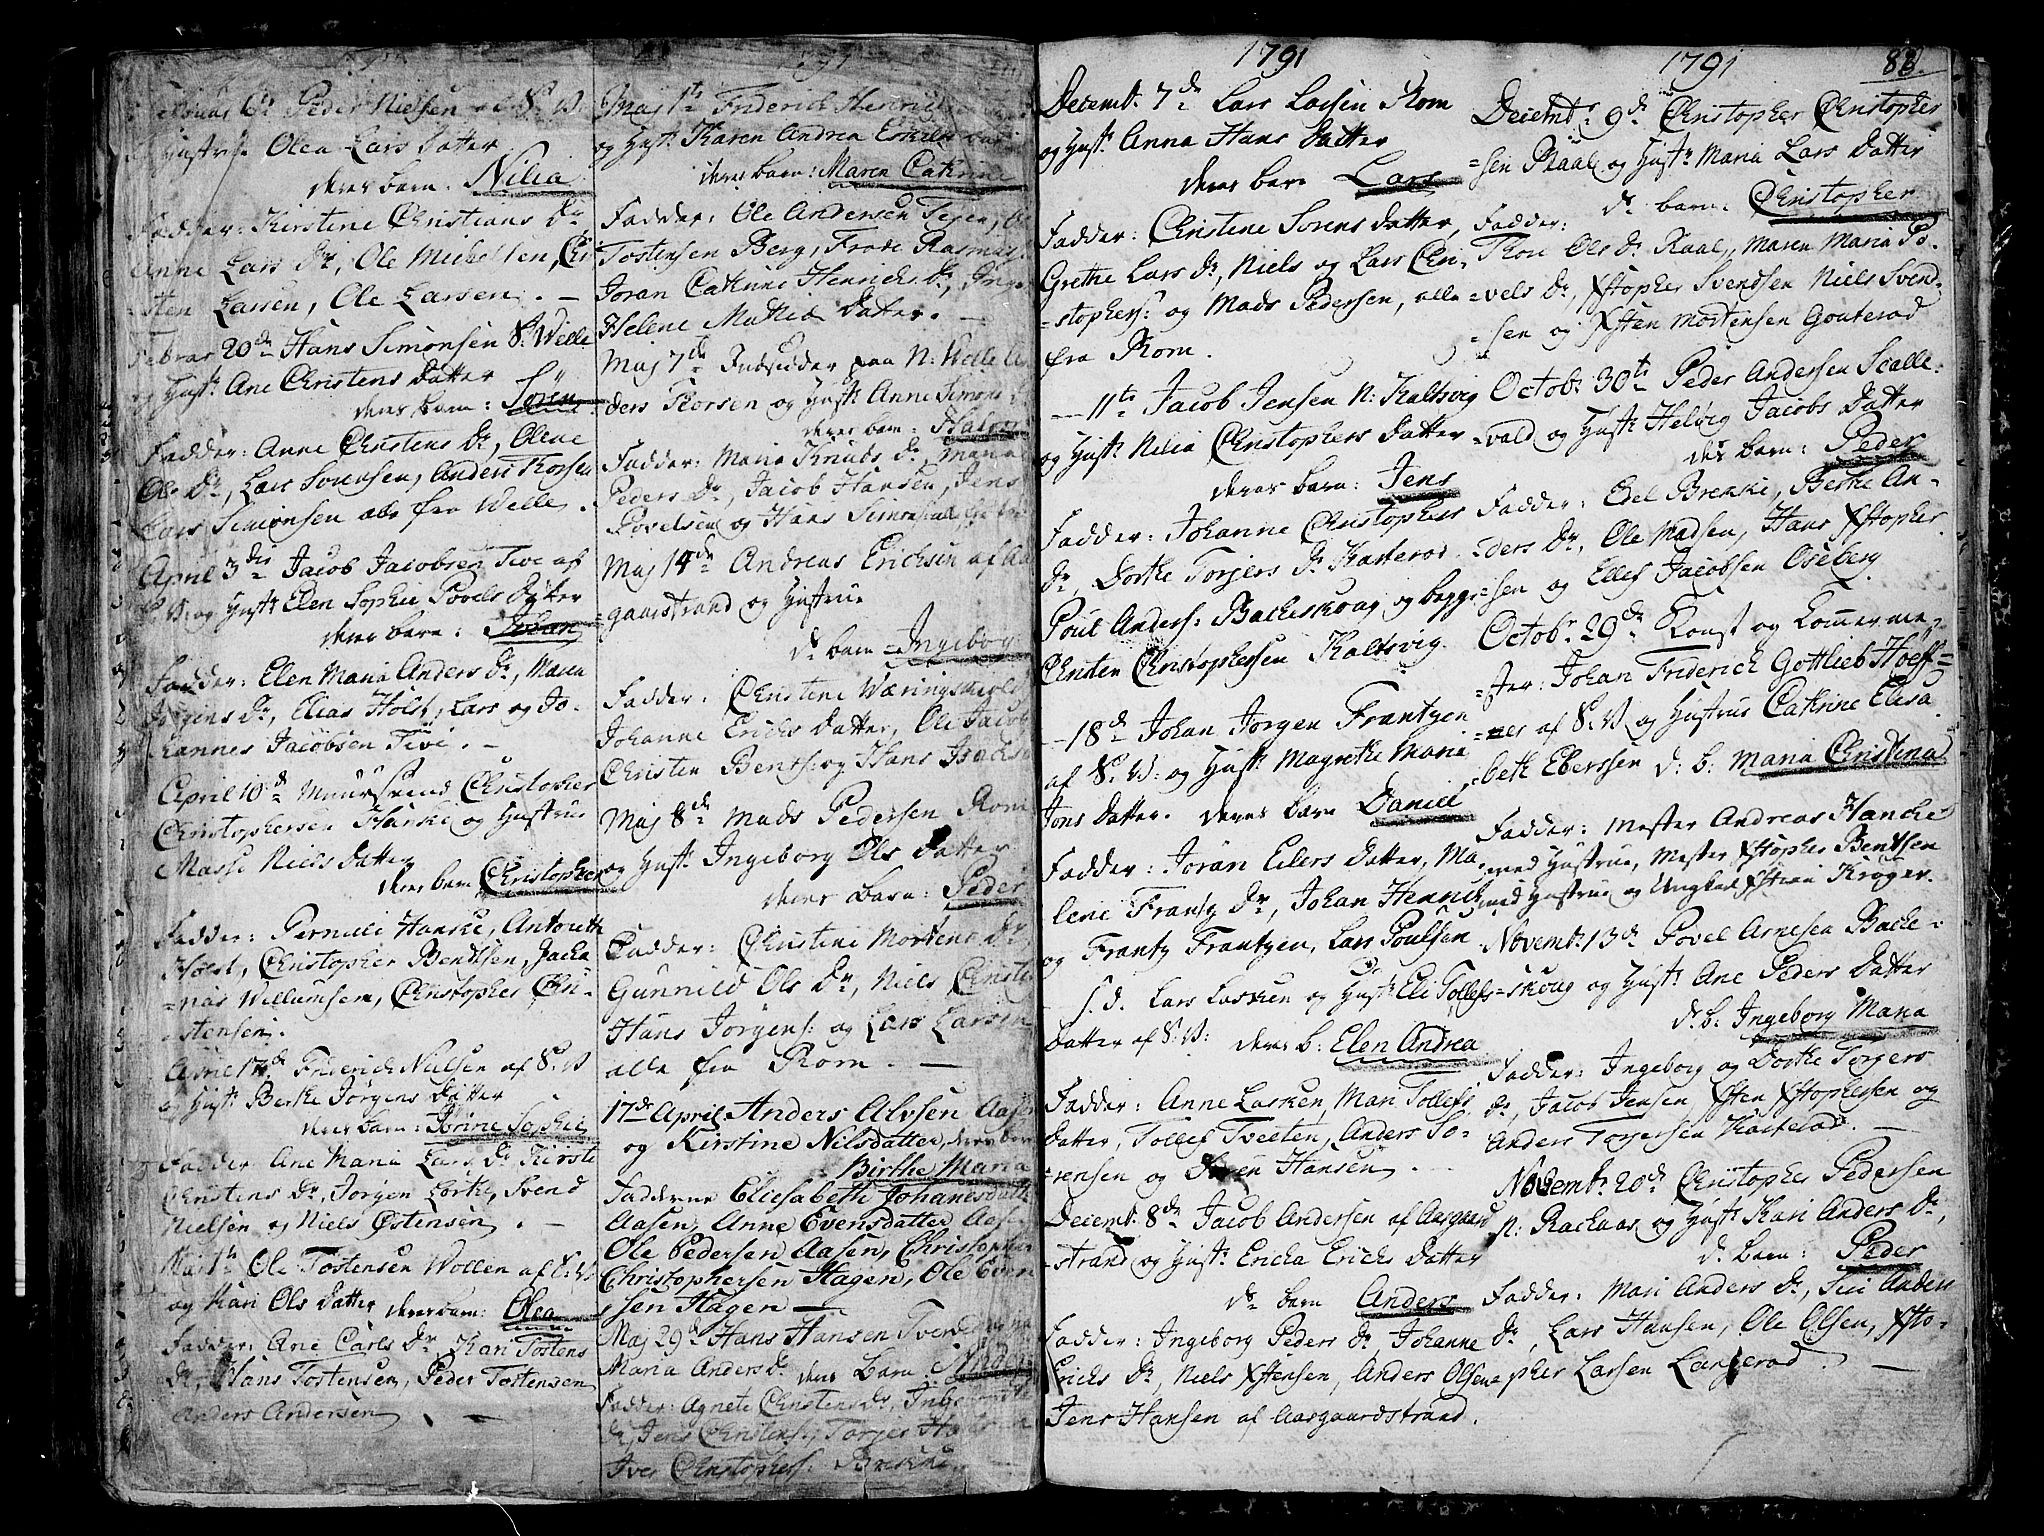 1791
Peder Nielsen af S: V.
Hustrue Olea Lars Datter
deres barn: Nilia
Fadder: Kirstine Christians Dr
Anne Lars Dr, Ole Michelsen, Chri
sten Larsen, Ole Larsen. —
Februar 20de Hans Simonsen S: Welle
og Hustr. Ane Christens Datter
deres barn: Sören
Fadder: Anne Christens Dr, Olene
Ols Dr, Lars Sorensen, Anders Thorsen
Lars Simonsen alle fra Welle.
April 3die Jacob Jacobsen Tive af
S: V. og Hustr. Elen Sophie Povels Datter
deres barn: Johan
Fadder: Elen Maria Anders Dr, Maria
Jörgens Dr, Elias Holst, Lars og Jo-
hannes Jacobsen Tive. —
April 10de Muursvend Christopher
Christophersen Hanske og Hustrue
Masse Niels Datter
deres barn Christopher
Fadder: Pernille Hanske, Antonette
Holst, Christopher Bendtsen, Zacha
=rias Willumsen, Christopher Chri-
=stensen.
April 17de Friderich Nielsen af S: V
og Hustr. Berthe Jörgens Datter
deres barn: Sörine Sophie
Fadder: Ane Maria Lars Dr Kirsti
Christens Dr, Jörgen Lorke, Svend
Nielsen og Niels Østensen. —
Ole Tostensen Wollen af S: V.
og Kari Ols Datter deres barn: Olea
Fadder: Ane Carls Dr, Kari Tostens
Dr, Hans Tostensen, Peder Tostensen
Anders Andersen. —
1791
Maj 1ste Friderich Henrichs
og Hustr. Karen Andrea Eskilds Datter
deres barn: Maren Cathrine
Fadder: Ole Andersen Teien, Ole
Tostensen Berg, Frode Rasmus.
Joran Cathrine Henrichs Dr, Inge
Helene Mathis Datter. —
Maj 7de Indsidder paa N: Welle An
ders Thorsen og Hustr. Anne Simons D
deres barn: Halvor
Fadder: Maria Knuds Dr, Maria
Peders Dr, Jacob Hansen, Jens
Povelsen og Hans Simonsen alle fra
Maj 14de Andreas Erichsen af Aas
=gaardstrand og Hustrue
Ds barn Ingeborg
Fadder: Christine Wæringsvold
Johanne Erichs Datter, Ole Jacob
Christen Bents: og Hans Isachse
Maj 8de Mads Pedersen Rom
og Hustr. Ingeborg Ols Datter
deres barn: Peder
Fadder: Christine Mortens Dr
Gunnild Ols Dr, Niels Christo
Hans Jörgens: og Lars Larsen
alle fra Rom. —
17de April Anders Alvsen Aasen
og Kirstine Nilsdatter, deres barn
Birthe Maria
Fadderne Eliesabeth Johanesdatter
Aasen, Anne Evensdatter Aasen
Ole Pedersen Aasen, Christopher
Christophersen Hagen, Ole Even
sen Hagen —
Maj 29de Hans Hansen Tveed
Maria Anders Dr deres Barn: Anders
Fadder: Agnete Christens Dr, Ingeborg
Dr, Jens Christens:, Torger H
Iver Christophers: Brekke
1791
Decemb. 7de Lars Larsen Rom
og Hustr. Anna Hans Datter
deres barn Lars
Fadder: Christine Sorens Datter,
Grethe Lars Dr, Niels og Lars Chri-
=stophers: og Mads Pedersen, alle
fra Rom.
— 11te Jacob Jensen N: Kaltsvig
og Hustr. Nilia Christophers Datter
deres barn: Jens
Fadder: Johanne Christophers
Dr, Dorthe Torgers Dr Karterod
Poul Anders: Backeskoug og begge
Christen Christophersen Kaltsvig.
— 18de Johan Jorgen Frantzen
af S: V: og Hustr. Magrethe Maria
Jons Datter. deres barn Daniel
Fadder: Joran Eilers Datter, Ma-
lene Frantz Dr, Johan Henrich
og Frantz Frantzen, Lars Poulsen
S. d. Lars Larsen og Hustr. Eli Tollefs
Datter af S: V: deres b: Elen Andrea
Fadder: Anne Larsen, Mari Tollefs
Datter, Tollef Tveten, Anders So-
=rensen og Søren Hansen.
Decemb. 8de Jacob Andersen af Aasgaard
=strand og Hustr. Ericka Erichs Datter
Ds barn Anders
Fadder: Ingeborg Peders Dr, Johanne
Erichs Dr, Niels Xstensen, Anders Olsen
Jens Hansen af Aasgaardstrand.
1791 88.
Decmbr. 9de Christopher Christopher
=sen Raal og Hustr. Maria Lars Datter
Ds barn: Christopher
Fadder:
Thore Ols Dr Raal, Maren Maria Po-
=vels Dr, Xstopher Svendsen Niels Svend-
=sen og Xsten Mortensen Gouterod
Octobr. 30te Peder Andersen Scalle-
=vald og Hustr. Helvig Jacobs Datter
des barn: Peder
Fadder: Edel Brekke, Berthe An-
=ders Dr, Ole Madsen, Hans Xstopher
=sen og Ellef Jacobsen Oseberg
Octobr. 29de Konst og Tømmerme-
=ster: Johan Friderich Gottlieb Hoff=
=ner af S: V: og Hustrue Cathrine Elisa
=beth Eberssen d: b: Maria Christina
Fadder: Mester Andreas Hancke
med Hustrue, Mester Xstopher Bentsen
med Hustrue og Ungkarl Xstian Kröger.
Novemb. 13de Povel Arnesen Backe-
=skoug og Hustr. Ane Peders Datter
d: b: Ingeborg Maria
Fadder: Ingeborg og Dorthe Torgers
Dr, Jacob Jensen, Xsten Xstophersen og
Anders Torgersen Karterod. —
Novemb. 20de Christopher Pedersen
N: Rackaas og Hustr. Kari Anders Dr,
d: barn: Peder
Fadder: Mari Anders Dr, Siri Anders
Dr, Lars Hansen, Ole Olsen, Xsto-
pher Larsen Langerod. —